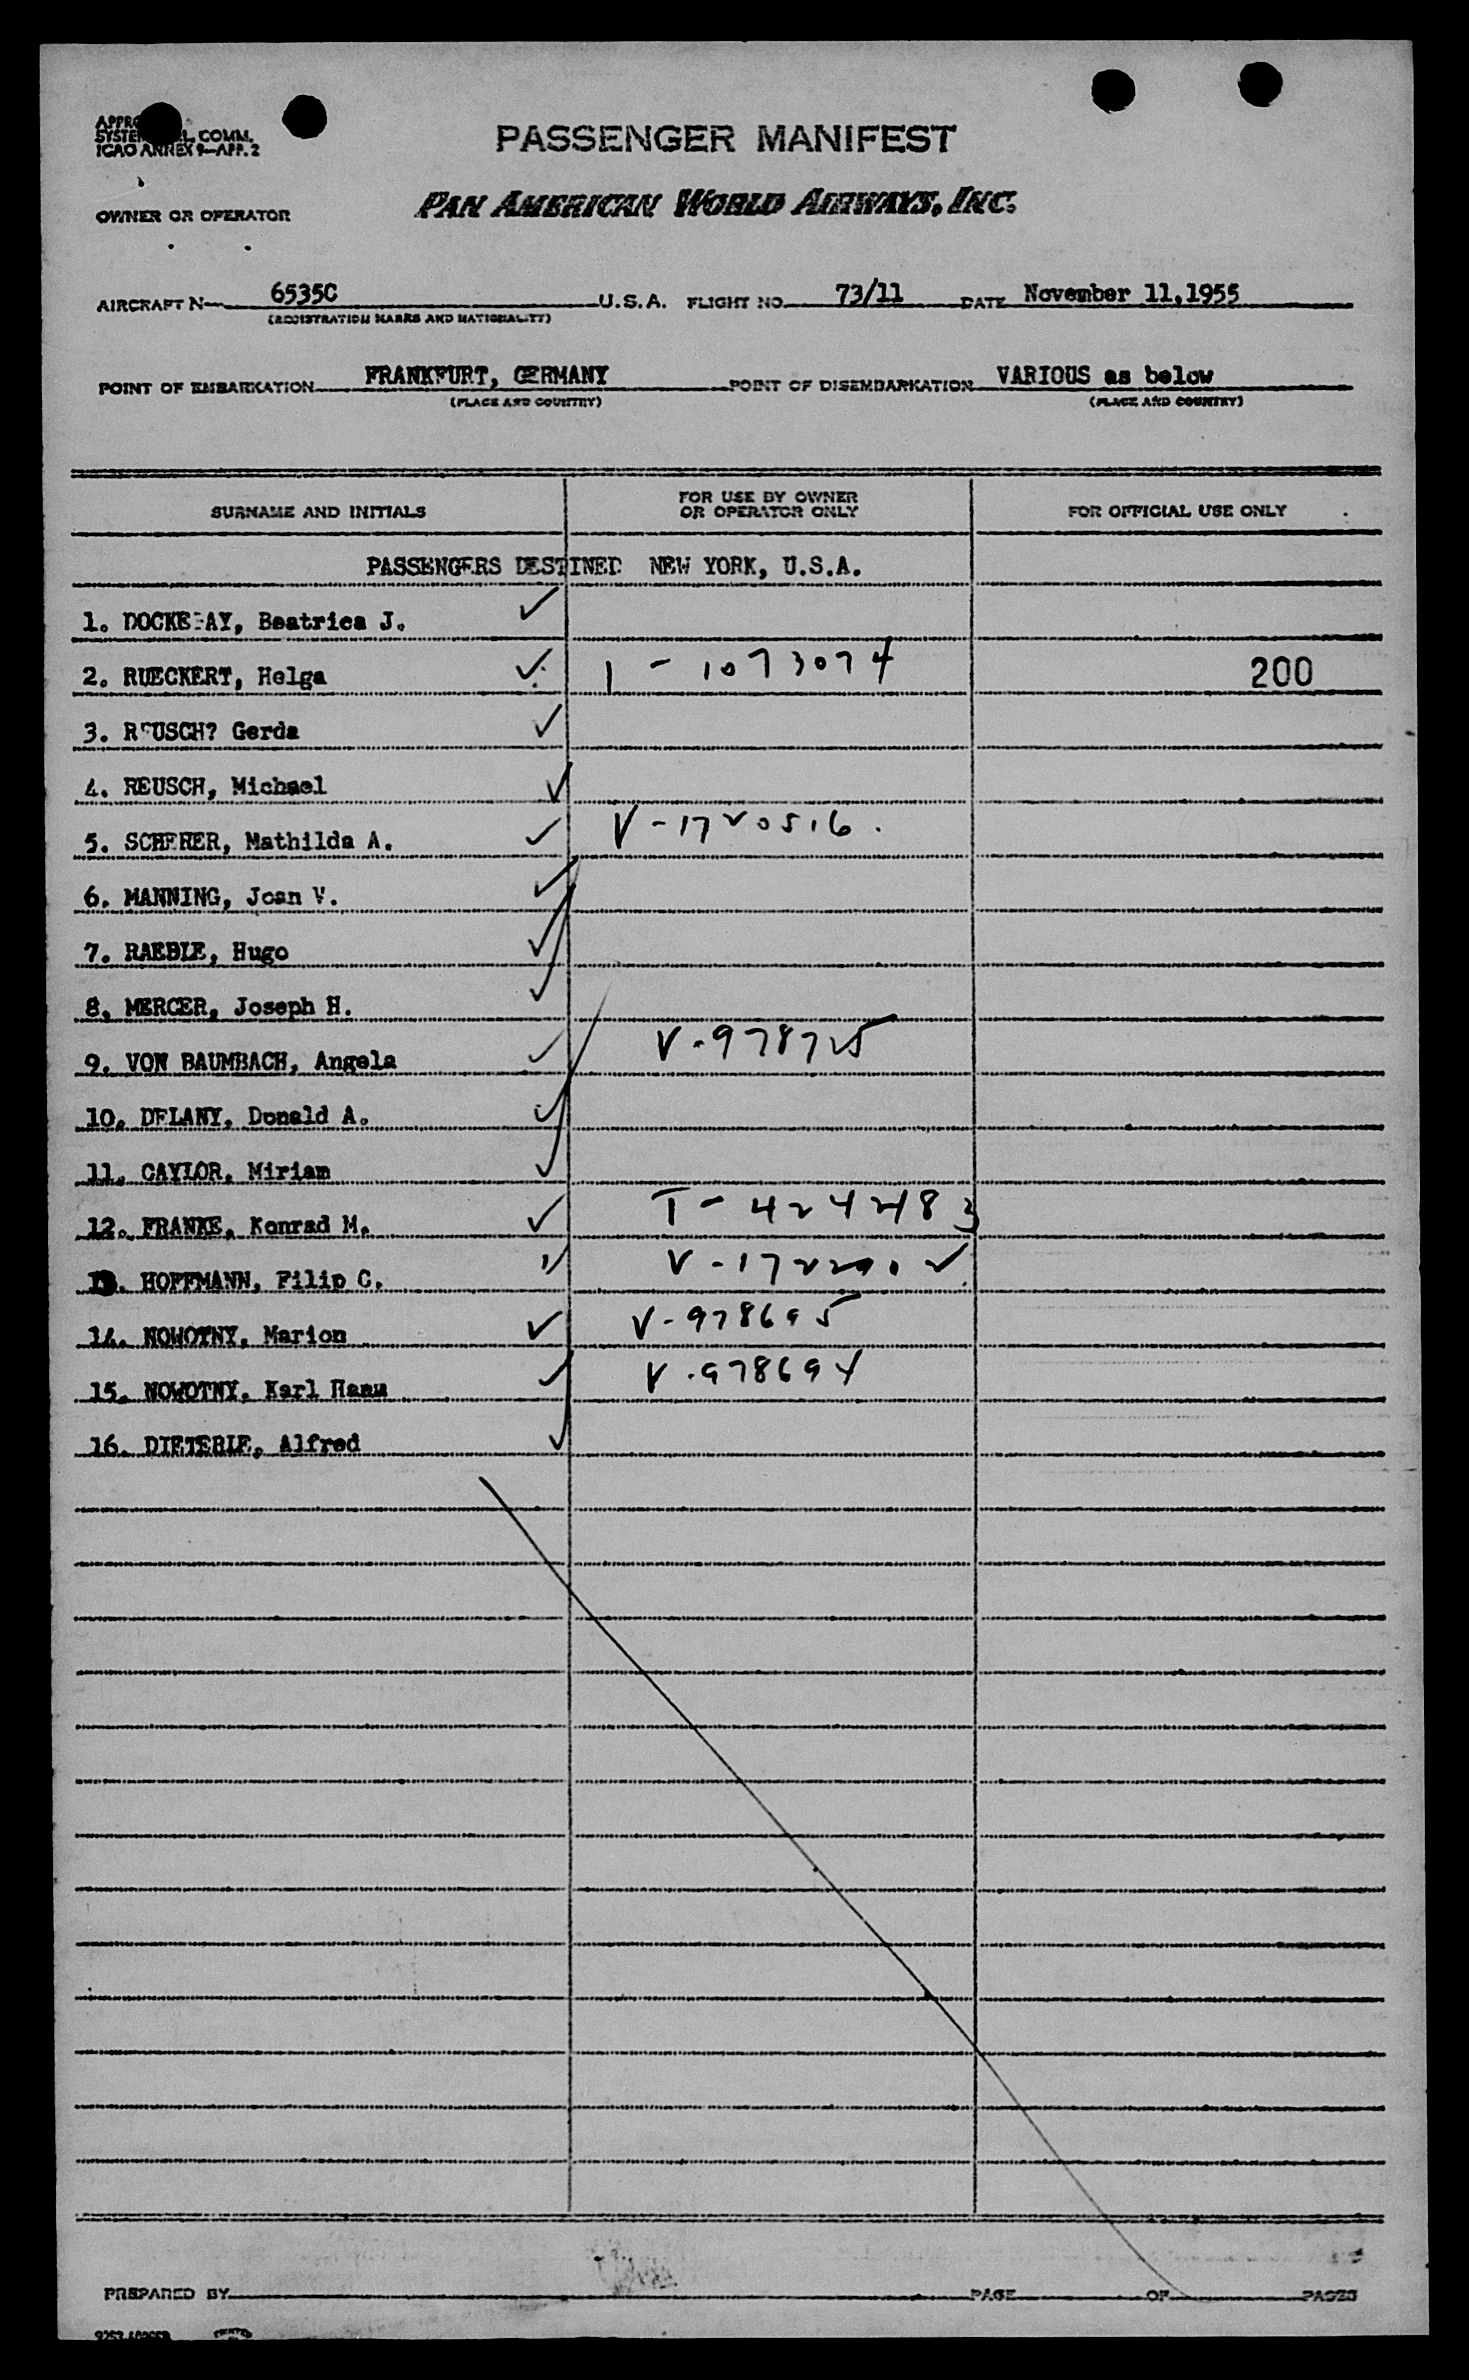 PASSENGER MANIFEST
ICAO ANNEX 9—APP. 2
OWNER OR OPERATOR
PAN AMERICAN WORLD AIRWAYS, INC.
AIRCRAFT N— 6535C U.S.A. FLIGHT NO. 73/11 DATE November 11,1955
(REGISTRATION MARKS AND NATIONALITY)
POINT OF EMBARKATION FRANKFURT, GERMANY POINT OF DISEMBARKATION VARIOUS as below
(PLACE AND COUNTRY) (PLACE AND COUNTRY)
SURNAME AND INITIALS FOR USE BY OWNER OR OPERATOR ONLY FOR OFFICIAL USE ONLY
PASSENGERS DESTINED NEW YORK, U.S.A.
1. Beatrice J.
2. RUECKERT, Helga 1 - 1073074 200
3. REUSCH? Gerda
4. REUSCH, Michael
5. SCHERER, Mathilda A. V-1720516.
6. MANNING, Joan V.
7. RAEBLE, Hugo
8. MERCER, Joseph H.
9. VON BAUMBACH, Angela V-978725
10. DELANY, Donald A.
11. CAYLOR, Miriam
12. FRANKE, Konrad M. T-4242483
13. HOFFMANN, Filip C.
14. NOWOTNY, Marion V-978695
15. NOWOTNY, Karl V-978694
16. DIETERLE, Alfred
PREPARED BY PAGE OF PAGES